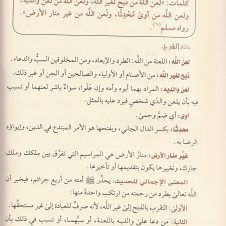 كلمات: «لعن الله من ذبح لغير الله، ولعن الله من لعن والديه،
ولعن الله من آوى محدثًا، ولعن الله من غير منار الأرض».
رواه مسلم(١).
الشرح
لعن الله: اللعنة من الله: الطرد والإبعاد، ومن المخلوقين السب والدعاء.
ذبح لغير الله: من الأصنام أو الأولياء والصالحين أو الجن أو غير ذلك.
لعن والديه: المراد بهما أبوه وأمه وإن علوا، سواءً باشر لعنهما أو تسبب
فيه بأن يلعن والدي شخص فيرد عليه بالمثل.
آوى: أي ضم وحمى.
محدثًا: بكسر الدال الجاني، وبفتحها هو الأمر المبتدع في الدين، وإيواؤه
الرضا به.
غير منار الأرض: منار الأرض هي المراسيم التي تفرق بين ملكك وملك
جارك، وتغييرها يكون بتقديمها أو تأخيرها.
المعنى الإجمالي للحديث: يحذر ﷺ أمته من أربع جرائم، فيخبر أن
الله تعالى يطرد من رحمته من ارتكب واحدة منها:
الأولى: التقرب بالذبح إلى غير الله، لأنه صرف للعبادة إلى غير مستحقها.
الثانية: من دعا على والديه باللعنة، أو سبهما، أو تسبب في ذلك بأن